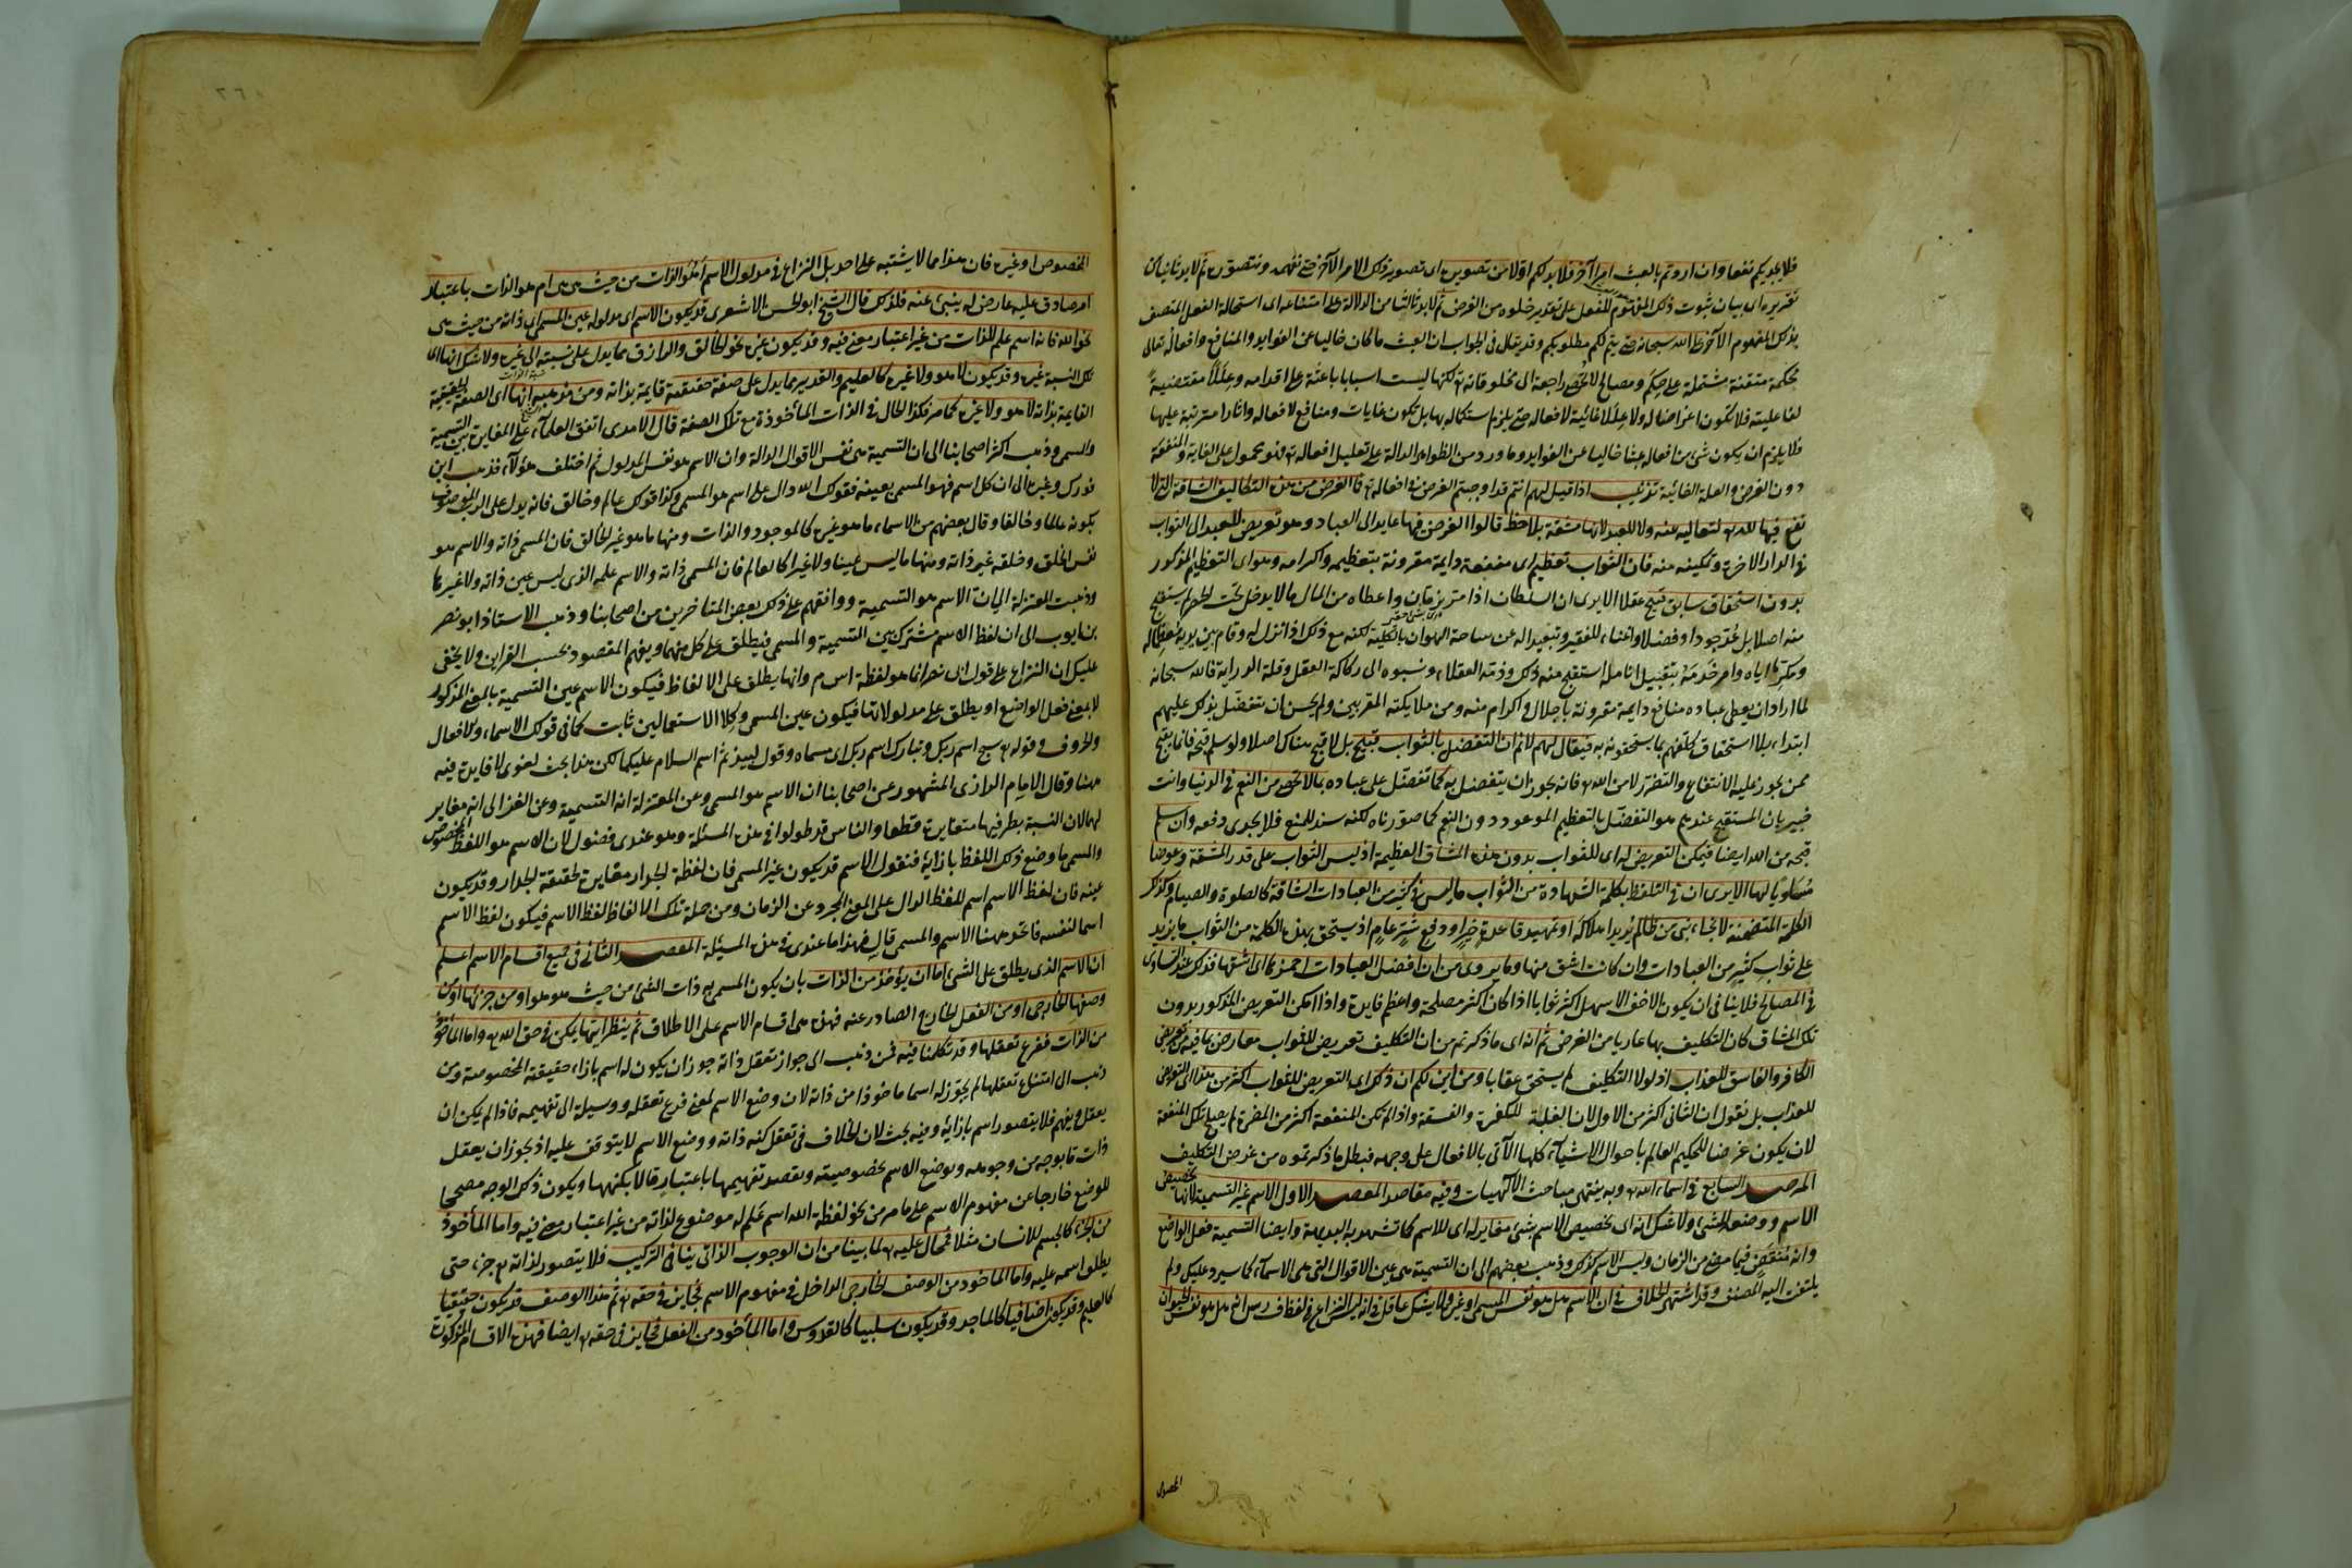 فلا يجديكم نفعا وان اردتم بالعبث امرا آخر فلا بد لكم اولا من تصويره اى تصوير ذلك الامر الآخر حتى نفهمه ونتصوره ثم لا بد ثانيا من
تقريره اى بيان ثبوت ذلك المفهوم للفعل على تقدير خلوه من الغرض ثم لا بد ثالثا من الدلالة على امتناعه اى استحالة الفعل المتصف
بذلك المفهوم الآخر على الله سبحانه حتى يتم لكم مطلوبكم وقد يقال فى الجواب ان العبث ما كان خاليا عن الفوايد والمنافع وافعاله تعالى
محكمة متقنة مشتملة على حكم ومصالح لا تحصى راجعة الى مخلوقاته تع لكنها ليست اسبابا باعثة على اقدامه وعللا مقتضية
لفاعليته فلا تكون اغراضا له ولا عللا غائية لافعاله حتى يلزم استكماله بها بل تكون غايات ومنافع لافعاله واثارا مترتبة عليها
فلا يلزم ان يكون شئ من افعاله عبثا خاليا عن الفوايد وما ورد من الظواهر الدالة على تعليل افعاله تع فهو محمول على الغاية والمنفعة
دون الغرض والعلة الغائية تذنيب اذا قيل لهم انتم قد اوجبتم الغرض فى افعاله تع فما الغرض من هذه التكاليف الشاقة التى لا
نفع فيها لله تع لتعاليه عنه ولا للعبد لانها مشقة بلا حظ قالوا الغرض فيها عايد الى العباد وهو تعريض للعبد الى الثواب
فى الدار الآخرة وتمكينه منه فان الثواب تعظيم اى منفعة دايمة مقرونة بتعظيم واكرام وهو اى التعظيم المذكور
بدون استحقاق سابق قبيح عقلا الا يرى ان السلطان اذا مر بزبال واعطاه من المال ما لا يدخل تحت الحصر لم يستقبح
منه اصلا بل عد جودا وفضلا واغناء للفقير وتبعيدا له عن ساحة الهوان بالكلية لكنه مع ذلك اذا نزل له وقام بين يديه معظما له
ومكرما اياه وامر خدمه بتقبيل انامله استقبح منه ذلك وذمه العقلاء ونسبوه الى ركاكة العقل وقلة الدراية فالله سبحانه
لما اراد ان يعطى عباده منافع دايمة مقرونة باجلال واكرام منه ومن ملايكته المقربين ولم يحسن ان يتفضل بذلك عليهم
ابتداء بلا استحقاق كلفهم بما يستحقونه به فيقال لهم لا نم ان التفضل بالثواب قبيح بل لا قبح هناك اصلا ولو سلم قبحه فانما يقبح
ممن يجوز عليه الانتفاع والتضرر لا من الله تع فانه يجوز ان يتفضل به كما تفضل على عباده بما لا يحصى من النعم فى الدنيا وانت
خبير بان المستقبح عندهم هو التفضل بالتعظيم الموعود دون النعم كما صورناه لكنه سند للمنع فلا يجدى دفعه وان سلم
قبحه من الله ايضا فيمكن التعريض له اى للثواب بدون هذه المشاق العظيمة اذ ليس الثواب على قدر المشقة وعوضا
مساويا لها الا يرى ان فى التلفظ بكلمة الشهادة من الثواب ما ليس فى كثير من العبادات الشاقة كالصلوة والصيام وكذلك
الكلمة المتضمنة لانجاء نبى من ظالم يريد اهلاكه او تمهيد قاعدة خير او دفع شر عام اذ يستحق بهذه الكلمة من الثواب ما يزيد
على ثواب كثير من العبادات وان كانت اشق منها وما يروى من ان افضل العبادات احمزها اى اشقها فذلك عند التساوى
فى المصالح فلا ينافى ان يكون الاخف الاسهل اكثر ثوابا اذا كان اكثر مصلحة واعظم فايدة واذا امكن التعريض المذكور بدون
تلك المشاق كان التكليف بها عاريا من الغرض ثم انه اى ما ذكرتم من ان التكليف تعريض للثواب معارض بما فيه من تعريض
الكافر والفاسق للعذاب اذ لولا التكليف لم يستحق عقابا ومن اين لكم ان ذلك اى التعريض للثواب اكثر من هذا اى التعريض
للعذاب بل نقول ان الثانى اكثر من الاول لان الغلبة للكفرة والفسقة واذا لم تكن المنفعة اكثر من المضرة لم يصلح تلك المنفعة
لان يكون غرضا للحكيم العالم باحوال الاشياء كلها الآتى بالافعال على وجهه فبطل ما ذكرتموه من غرض التكليف
المرصد السابع فى اسماء الله تع وبه ينتهى مباحث الآلهيات وفيه مقاصد المقصد الاول الاسم غير التسمية لانها تخصيص
الاسم ووضعه للشئ ولا شك انه اى تخصيص الاسم بشئ مغاير له اى للاسم كما تشهد به البديهة وايضا التسمية فعل الواضع
وانه منقض فيما مضى من الزمان وليس الاسم كذلك وذهب بعضهم الى ان التسمية هى عين الاقوال التى هى الاسماء كما سيرد عليك ولم
يلتفت اليه المصنف وقد اشتهر الخلاف فى ان الاسم هل هو نفس المسمى او غيره ولا يشك عاقل فى انه ليس النزاع فى لفظة ف ر س انه هل هو نفس الحيوان
المخصوص
المخصوص او غيره فان هذا مما لا يشتبه على احد بل النزاع فى مدلول الاسم اهو الذات من حيث هى هى ام هو الذات باعتبار
امر صادق عليه عارض له ينبئ عنه فلذلك قال الشيخ ابو الحسن الاشعرى قد يكون الاسم اى مدلوله عين المسمى اى ذاته من حيث هى
نحو الله فانه اسم علم للذات من غير اعتبار معنى فيه وقد يكون غيره نحو الخالق والرازق مما يدل على نسبته الى غيره ولا شك انها اى
تلك النسبة غيره وقد يكون لا هو ولا غيره كالعليم والقدير مما يدل على صفة حقيقية قايمة بذاته ومن مذهبه انها اى الصفة الحقيقية
القايمة بذاته لا هو ولا غيره كما مر فكذا الحال فى الذات المأخوذة مع تلك الصفة قال الآمدى اتفق العلماء على المغايرة بين التسمية
والمسمى وذهب اكثر اصحابنا الى ان التسمية هى نفس الاقوال الدالة وان الاسم هو نفس المدلول ثم اختلف هؤلاء فذهب ابن
فورك وغيره الى ان كل اسم فهو المسمى بعينه فقولك الله دال على اسم هو المسمى وكذا قولك عالم وخالق فانه يدل على الرب الموصوف
بكونه عالما وخالقا وقال بعضهم من الاسماء ما هو عين كالموجود والذات ومنها ما هو غير كالخالق فان المسمى ذاته والاسم هو
نفس الخلق وخلقه غير ذاته ومنها ما ليس عينا ولا غيرا كالعالم فان المسمى ذاته والاسم علمه الذى ليس عين ذاته ولا غيرها
وذهبت المعتزلة الى ان الاسم هو التسمية ووافقهم على ذلك بعض المتاخرين من اصحابنا وذهب الاستاذ ابو نصر
بن ايوب الى ان لفظ الاسم مشترك بين التسمية والمسمى فيطلق على كل منهما ويفهم المقصود بحسب القراين ولا يخفى
عليك ان النزاع على قول ابى نصر انما هو لفظة ا س م وانها يطلق على الالفاظ فيكون الاسم عين التسمية بالمعنى المذكور
لا بمعنى فعل الواضع او يطلق على مدلولاتها فيكون عين المسمى وكلا الاستعمالين ثابت كما فى قولك الاسماء والافعال
والحروف وقوله تع سبح اسم ربك وتبارك اسم ربك اى مسماه وقول لبيد ثم اسم السلام عليكما لكن هذا بحث لغوى لا فايدة فيه
ههنا وقال الامام الرازى المشهور عن اصحابنا ان الاسم هو المسمى وعن المعتزلة انه التسمية وعن الغزالى انه مغاير
لهما لان النسبة بطرفيها متغايرة قطعا والناس قد طولوا فى هذه المسئلة وهو عندى فضول لان الاسم هو اللفظ المخصوص
والمسمى ما وضع ذلك اللفظ بازائه فنقول الاسم قد يكون غير المسمى فان لفظة الجدار مغايرة لحقيقة الجدار وقد يكون
عينه فان لفظ الاسم اسم للفظ الدال على المعنى المجرد عن الزمان ومن جملة تلك الالفاظ لفظ الاسم فيكون لفظ الاسم
اسما لنفسه فاتحد ههنا الاسم والمسمى قال فهذا ما عندى فى هذه المسئلة المقصد الثانى فى جميع اقسام الاسم اعلم
ان الاسم الذى يطلق على الشئ اما ان يؤخذ من الذات بان يكون المسمى به ذات الشئ من حيث هو هو او من جزئها او من
وصفها الخارجى او من الفعل الخارج الصادر عنه فهذه هى اقسام الاسم على الاطلاق ثم ينظر ايها يمكن فى حق الله تع واما المأخوذ
من الذات ففرع تعقلها وقد تكلمنا فيه فمن ذهب الى جواز تعقل ذاته جوز ان يكون له اسم بازاء حقيقته المخصوصة ومن
ذهب الى امتناع تعقلها لم يجوز له اسما ماخوذا من ذاته لان وضع الاسم لمعنى فرع تعقله ووسيلة الى تفهيمه فاذا لم يمكن ان
يعقل ويفهم فلا يتصور اسم بازائه وفيه بحث لان الخلاف فى تعقل كنه ذاته ووضع الاسم لا يتوقف عليه اذ يجوز ان يعقل
ذات ما بوجه من وجوهه ويوضع الاسم لخصوصيته ويقصد تفهيمها باعتبار ما لا بكنهها ويكون ذلك الوجه مصححا
للوضع خارجا عن مفهوم الاسم على ما مر من نحو لفظة الله اسم علم له موضوع لذاته من غير اعتبار معنى فيه واما المأخوذ
من الجزء كالجسم للانسان مثلا فمحال عليه تع لما بينا من ان الوجوب الذاتى ينافى التركيب فلا يتصور لذاته تع جزء حتى
يطلق اسمه عليه واما الماخوذ من الوصف الخارجى الداخل فى مفهوم الاسم فجايز فى حقه تع ثم هذا الوصف قد يكون حقيقيا
كالعليم وقد يكون اضافيا كالماجد وقد يكون سلبيا كالقدوس واما المأخوذ من الفعل فجايز فى حقه تع ايضا فهذه الاقسام المذكورة